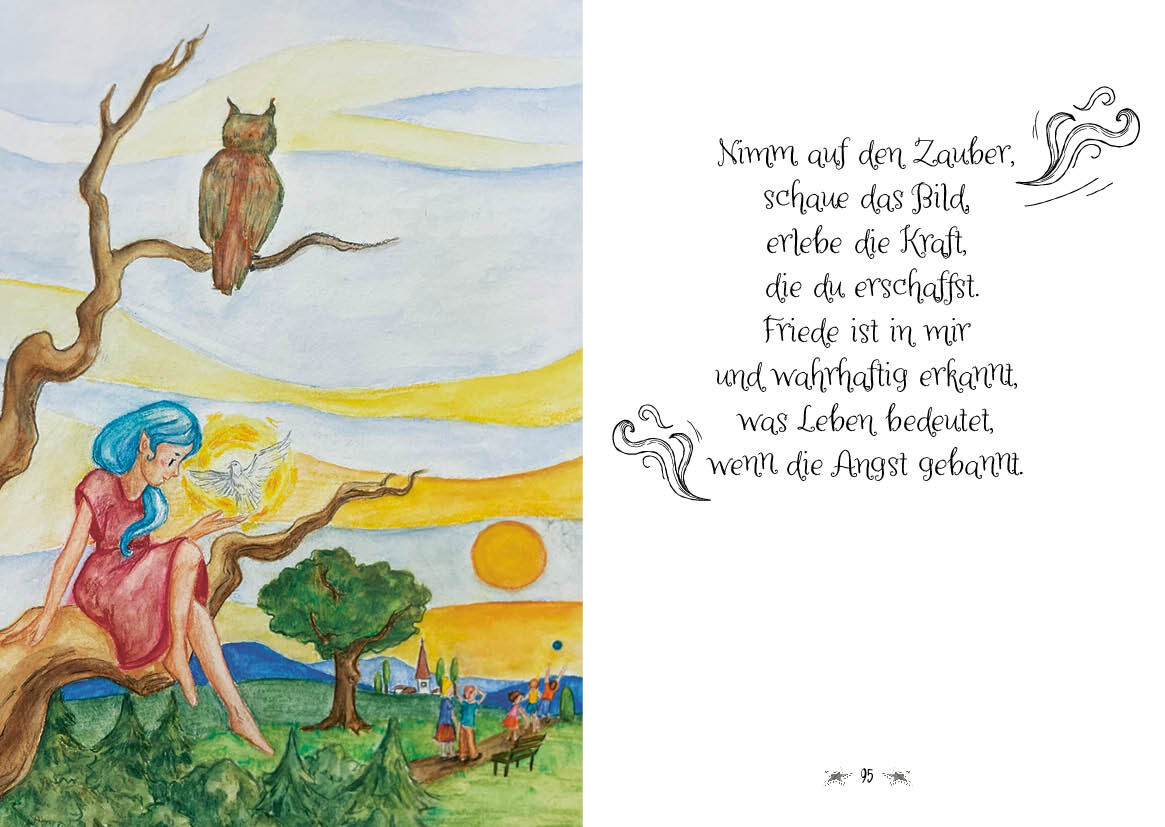 Nimm auf den Zauber,
schaue das Bild,
erlebe die Kraft,
die du erschaffst.
Friede ist in mir
und wahrhaftig erkannt,
was Leben bedeutet,
wenn die Angst gebannt.
95